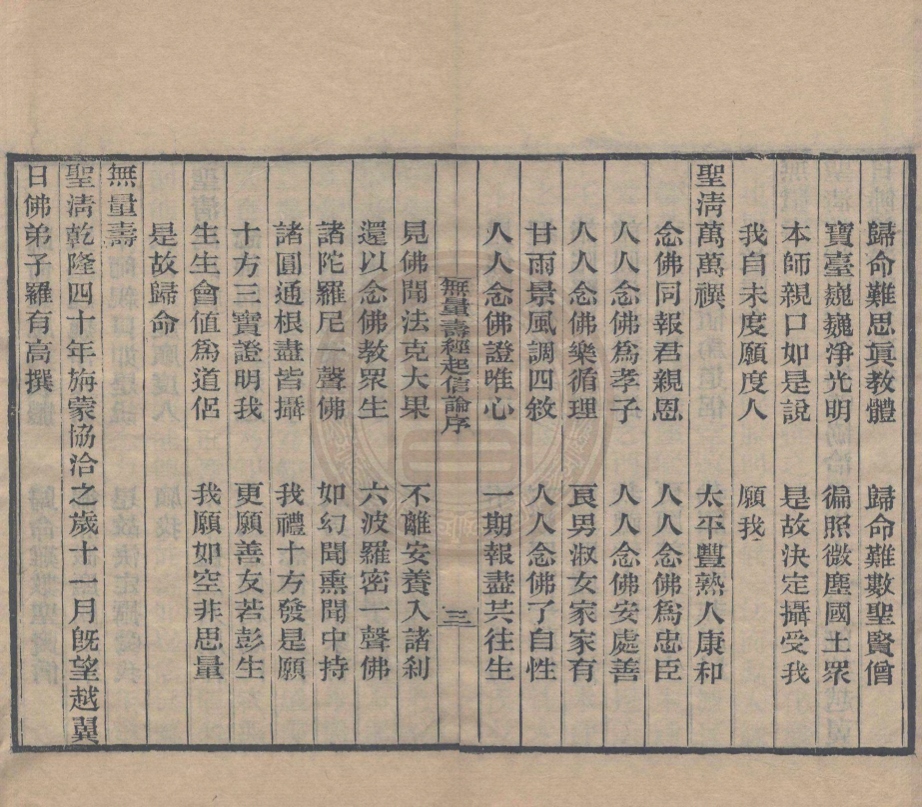 歸命難思眞教體　歸命難數聖賢僧
寶臺巍巍淨光明　徧照微塵國土眾
本師親口如是說　是故決定攝受我
我自未度願度人　願我
聖淸萬萬禩　太平豐熟人康和
念佛同報君親恩　人人念佛爲忠臣
人人念佛爲孝子　人人念佛安處善
人人念佛樂循理　良男淑女家家有
甘雨景風調四敘　人人念佛了自性
人人念佛證唯心　一期報盡共往生
無量壽經起信論序　三
見佛聞法克大果　不離安養入諸刹
還以念佛教眾生　六波羅密一聲佛
諸陀羅尼一聲佛　如幻聞熏聞中持
諸圓通根盡皆攝　我禮十方發是願
十方三寶證明我　更願善友若彭生
生生會值爲道侶　我願如空非思量
是故歸命
無量壽
聖淸乾隆四十年旃蒙協洽之歲十一月旣望越翼
日佛弟子羅有高撰